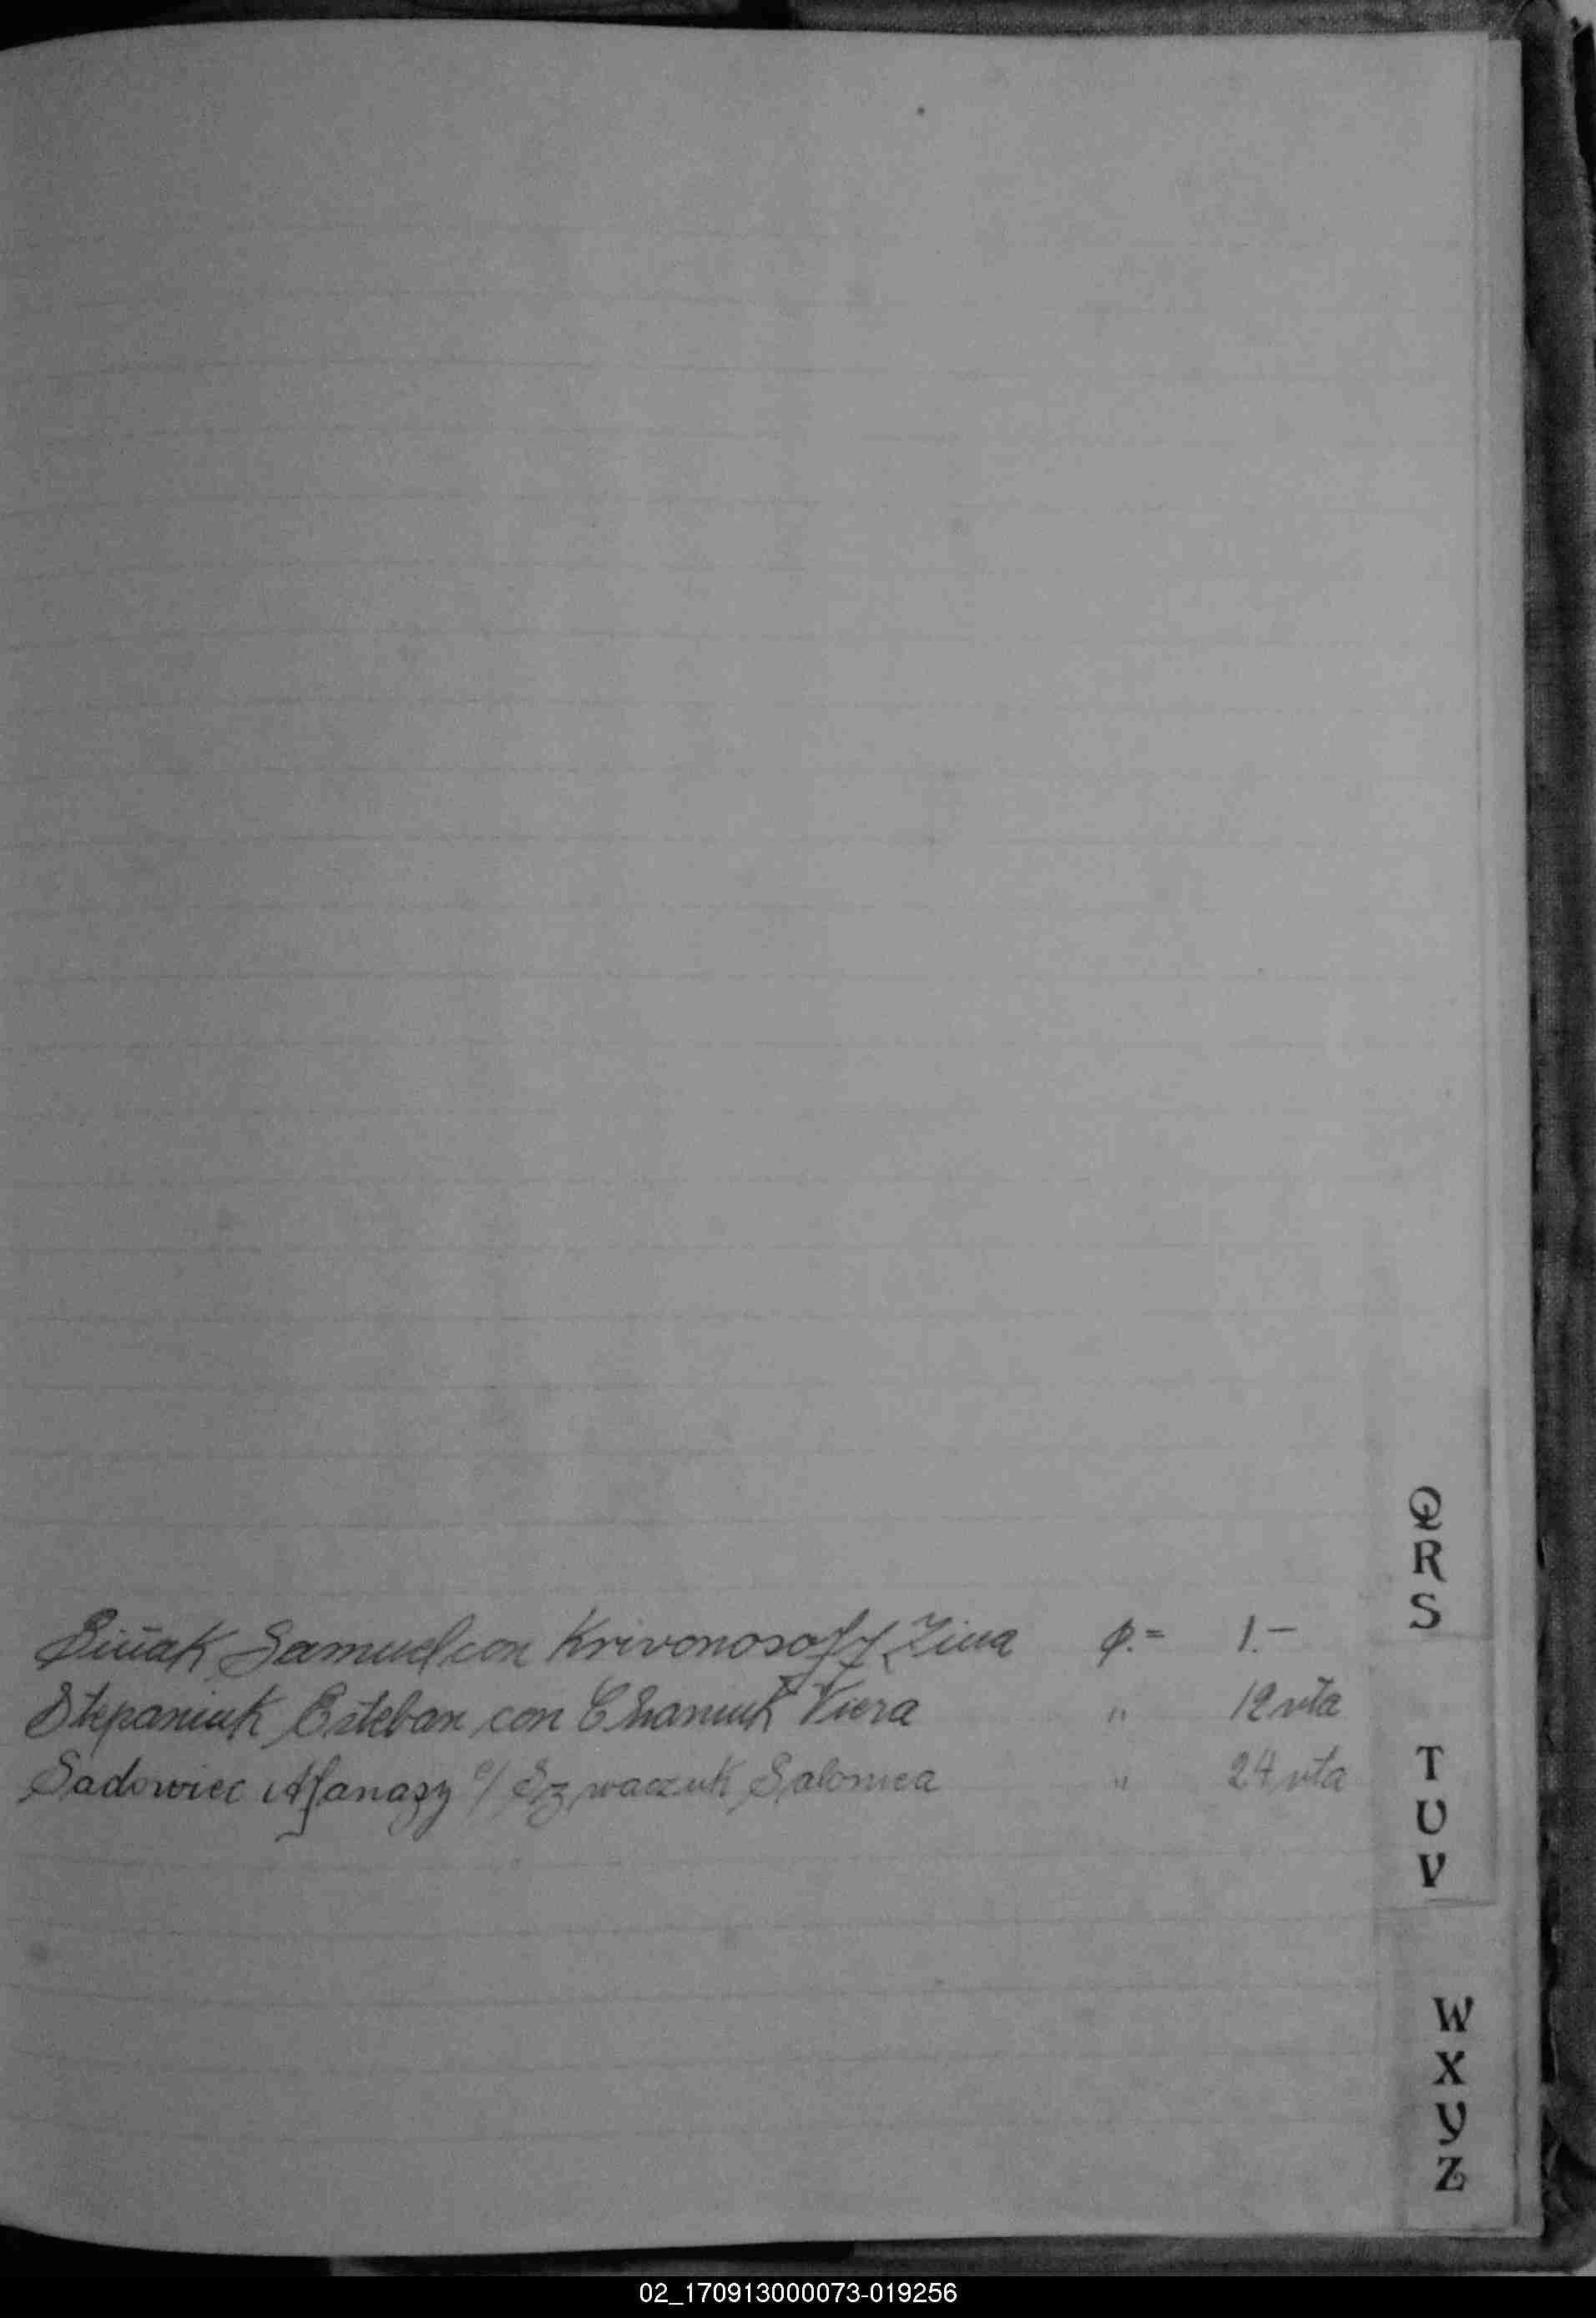 Q
R
S
Siñak Samuel con Krivonosoff Zina ꝑ.= 1.-
Stepaniuk Esteban con Chaniuk Viera " 12 vta
T
Sadowiec Afanazy c/ Szwaczuk Salomea " 24 vta
U
V
W
X
Y
Z
02_170913000073-019256